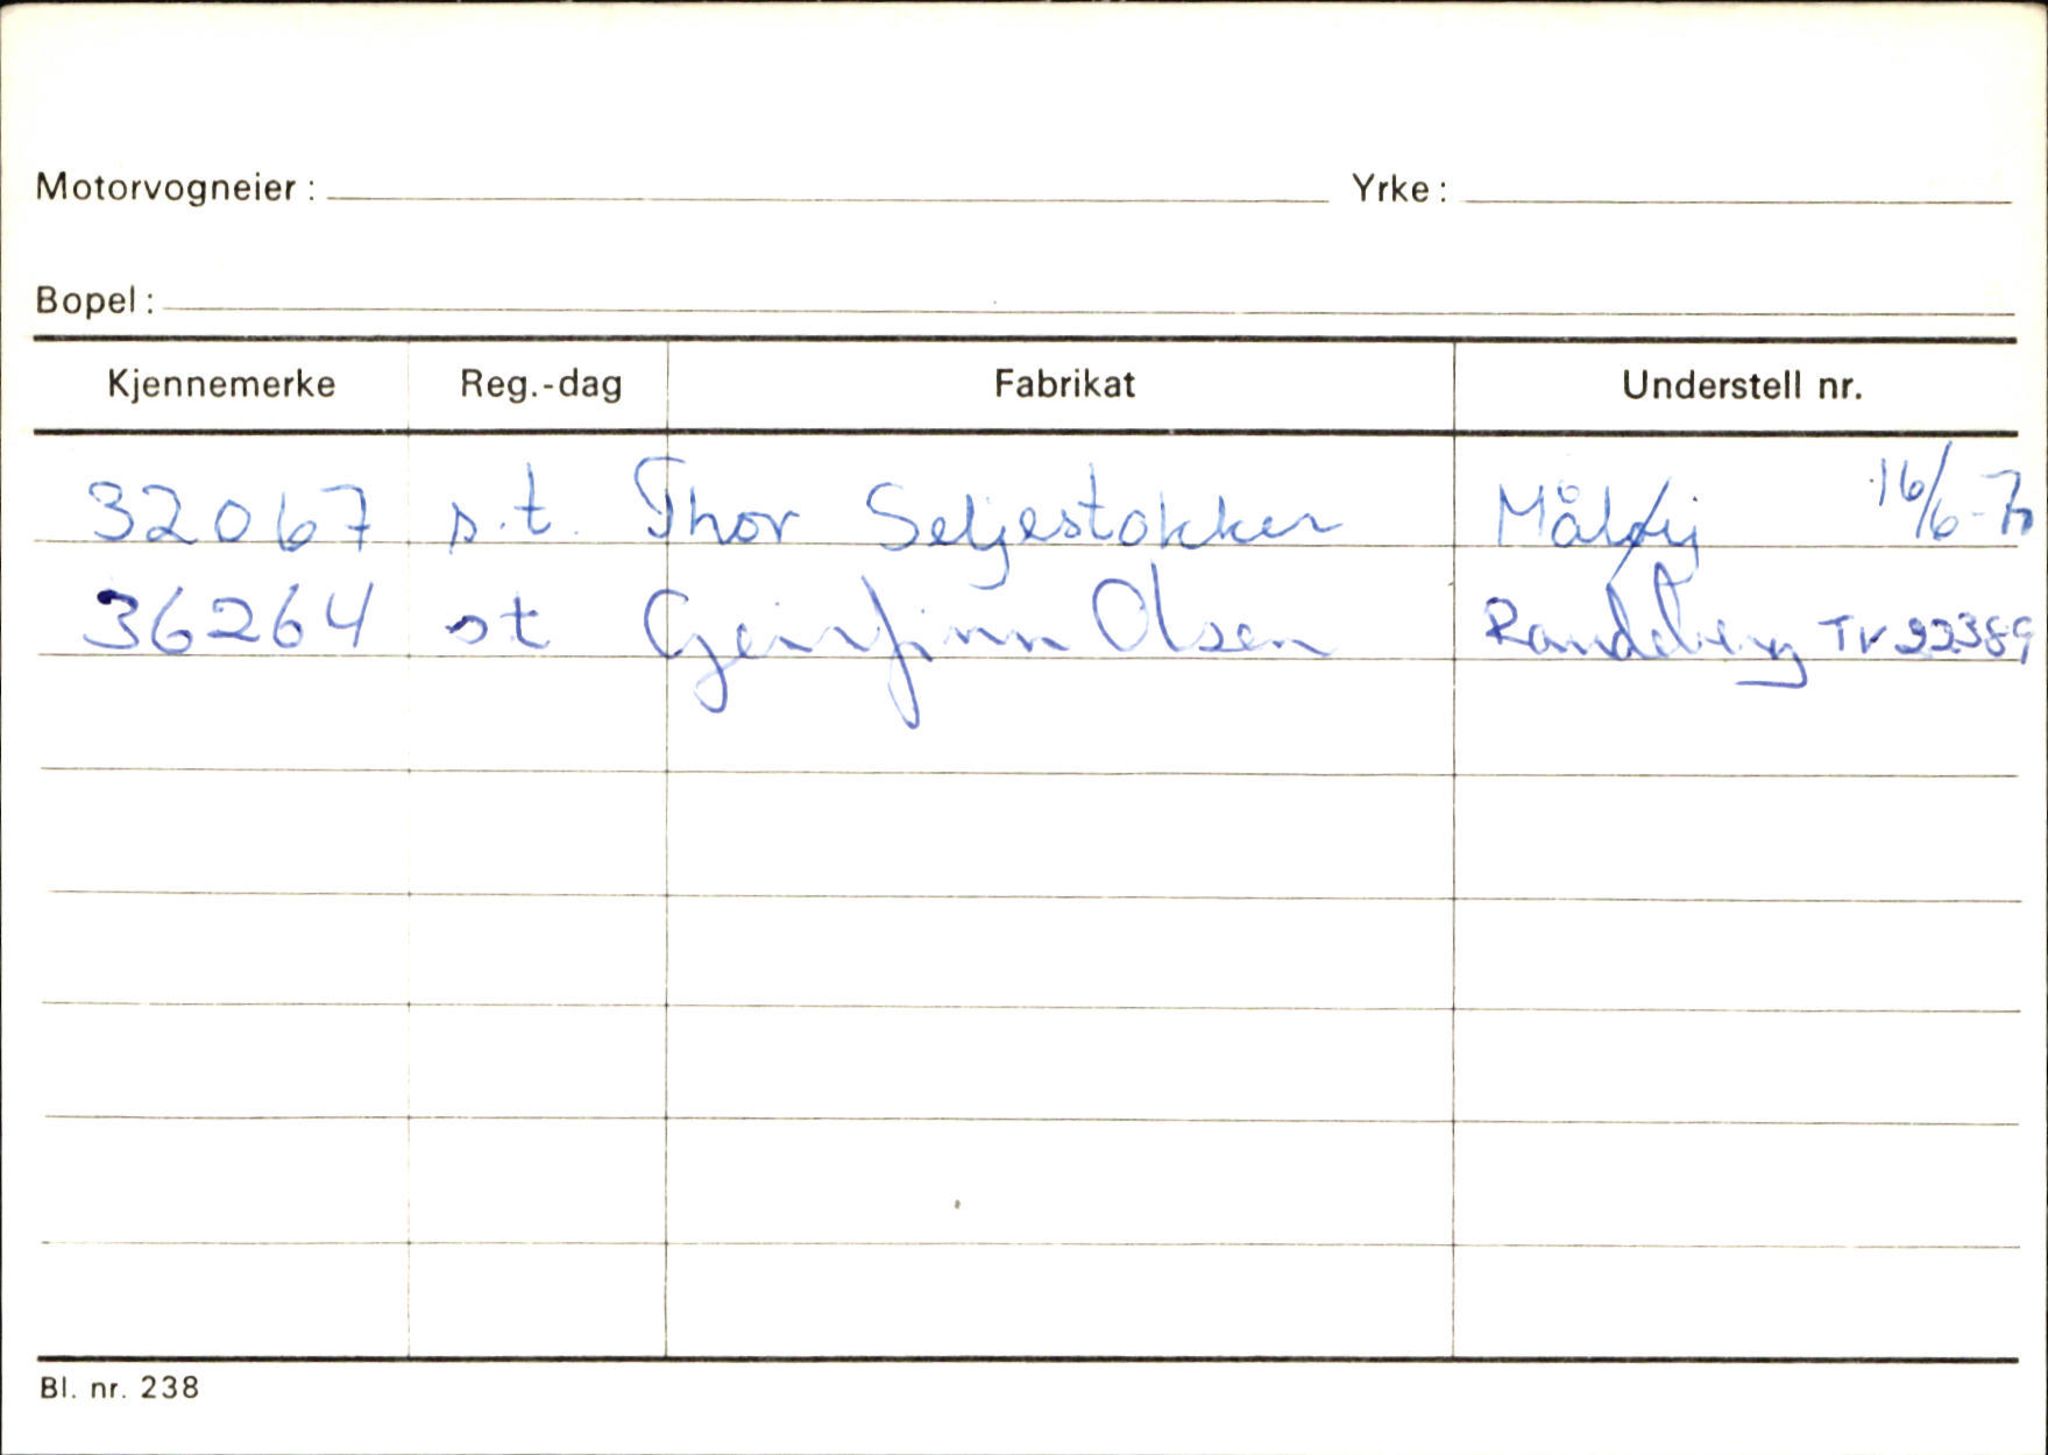 Motorvogneier: Yrke:
Bopel:
Kjennemerke Reg.-dag Fabrikat Understell nr.
32067 s.t. Thor Seljestokken Måløy 16/6-70
36264 st Geirfinn Olsen Randeberg TV 22389
Bl. nr. 238